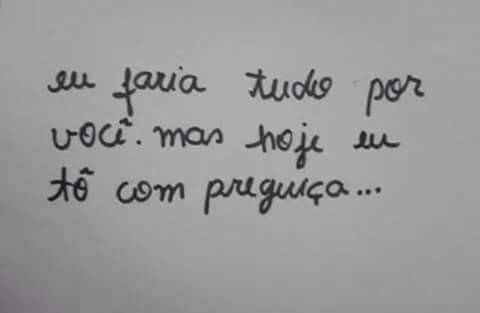 eu faria tudo por
você. mas hoje eu
tô com preguiça...